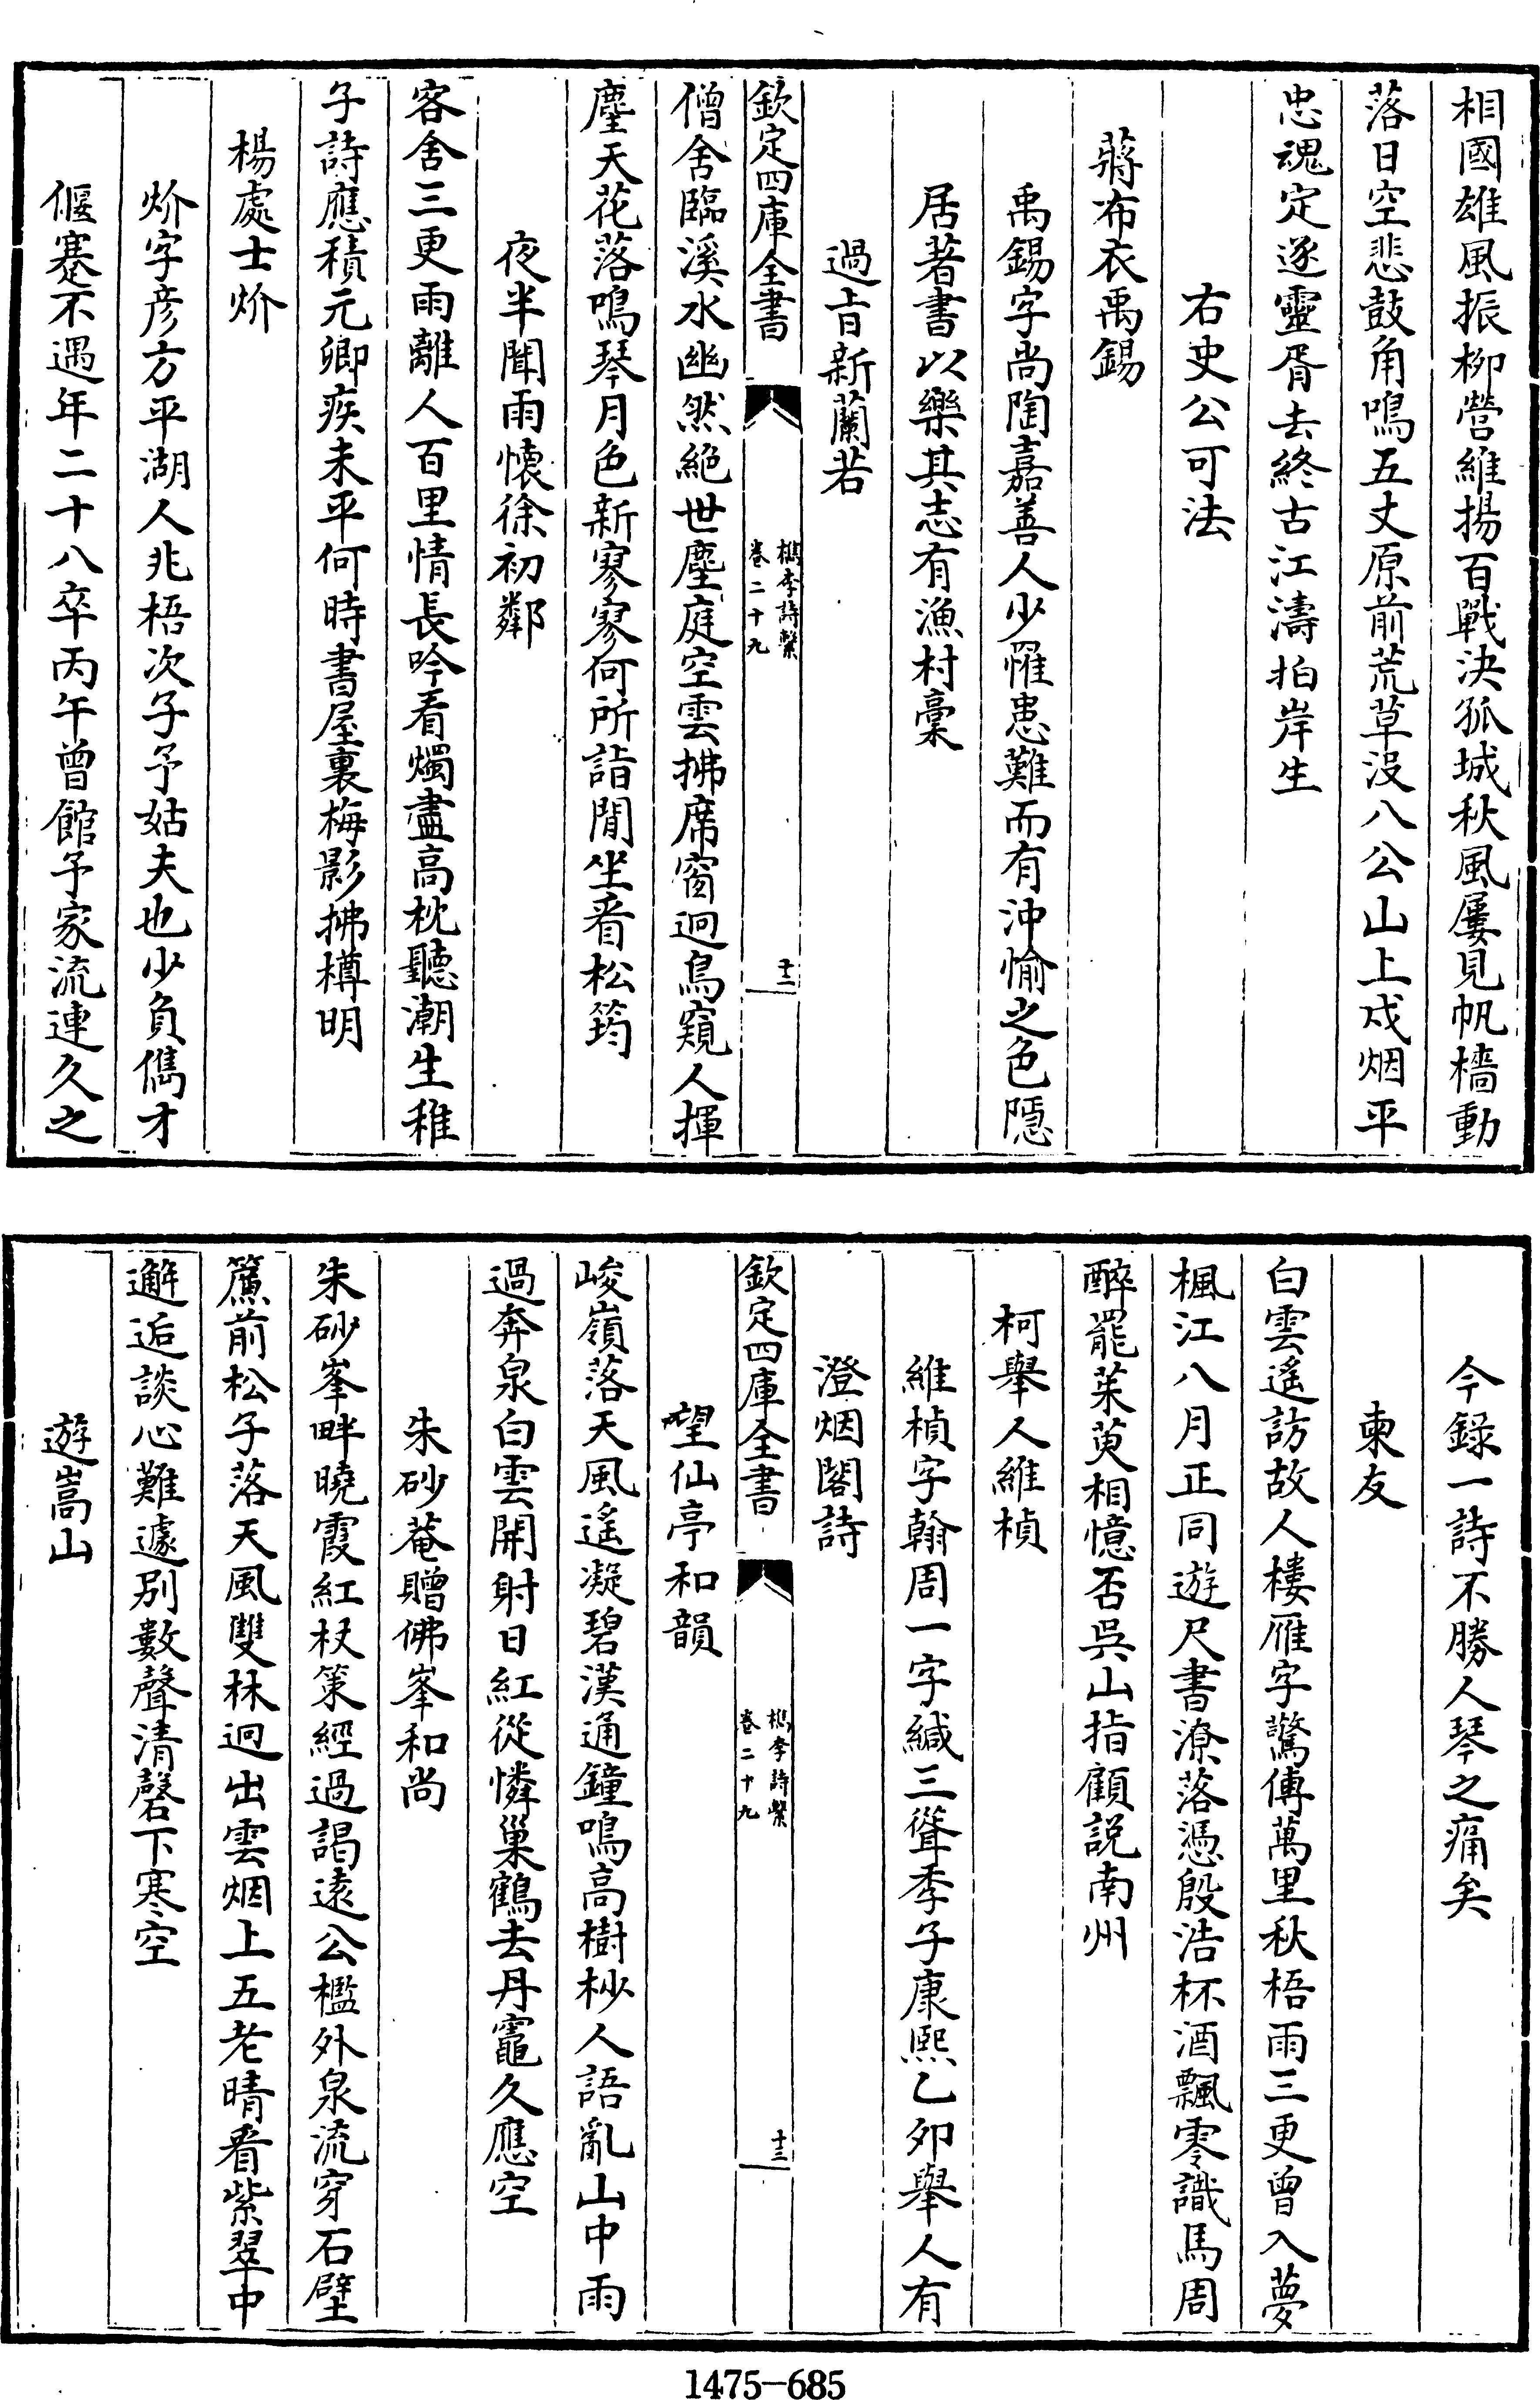 相國雄風振柳營維揚百戰決孤城秋風屢見帆檣動
落日空悲鼓角鳴五丈原前荒草沒八公山上戍烟平
忠魂定逐靈胥去終古江濤拍岸生
右史公可法
蔣布衣禹錫
禹錫字尚陶嘉善人少罹患難而有沖愉之色隱
居著書以樂其志有漁村稾
過旨新蘭若
欽定四庫全書
檇李詩繫
卷二十九
十二
僧舍臨溪水幽然絕世塵庭空雲拂席窗迥鳥窺人揮
麈天花落鳴琴月色新寥寥何所詣閒坐看松筠
夜半聞雨懷徐初鄰
客舍三更雨離人百里情長吟看燭盡高枕聽潮生稚
子詩應積元卿疾未平何時書屋裏梅影拂樽明
楊處士炌
炌字彦方平湖人兆梧次子予姑夫也少負儁才
偃蹇不遇年二十八卒丙午曾館予家流連久之
今錄一詩不勝人琴之痛矣
柬友
白雲遙訪故人樓雁字驚傳萬里秋梧雨三更曾入夢
楓江八月正同遊尺書潦落憑殷浩杯酒飄零識馬周
醉罷茱萸相憶否吳山指顧說南州
柯舉人維楨
維楨字翰周一字緘三聳季子康熙乙卯舉人有
澄烟閣詩
欽定四庫全書
檇李詩繫
卷二十九
十三
望仙亭和韻
峻嶺落天風遙凝碧漢通鐘鳴高樹杪人語亂山中雨
過奔泉白雲開射日紅從憐巢鶴去丹竈久應空
朱砂菴贈佛峯和尚
朱砂峯畔曉霞紅杖策經過謁遠公檻外泉流穿石壁
簾前松子落天風雙林迥出雲烟上五老晴看紫翠中
邂逅談心難遽別數聲清磬下寒空
遊嵩山
1475-685